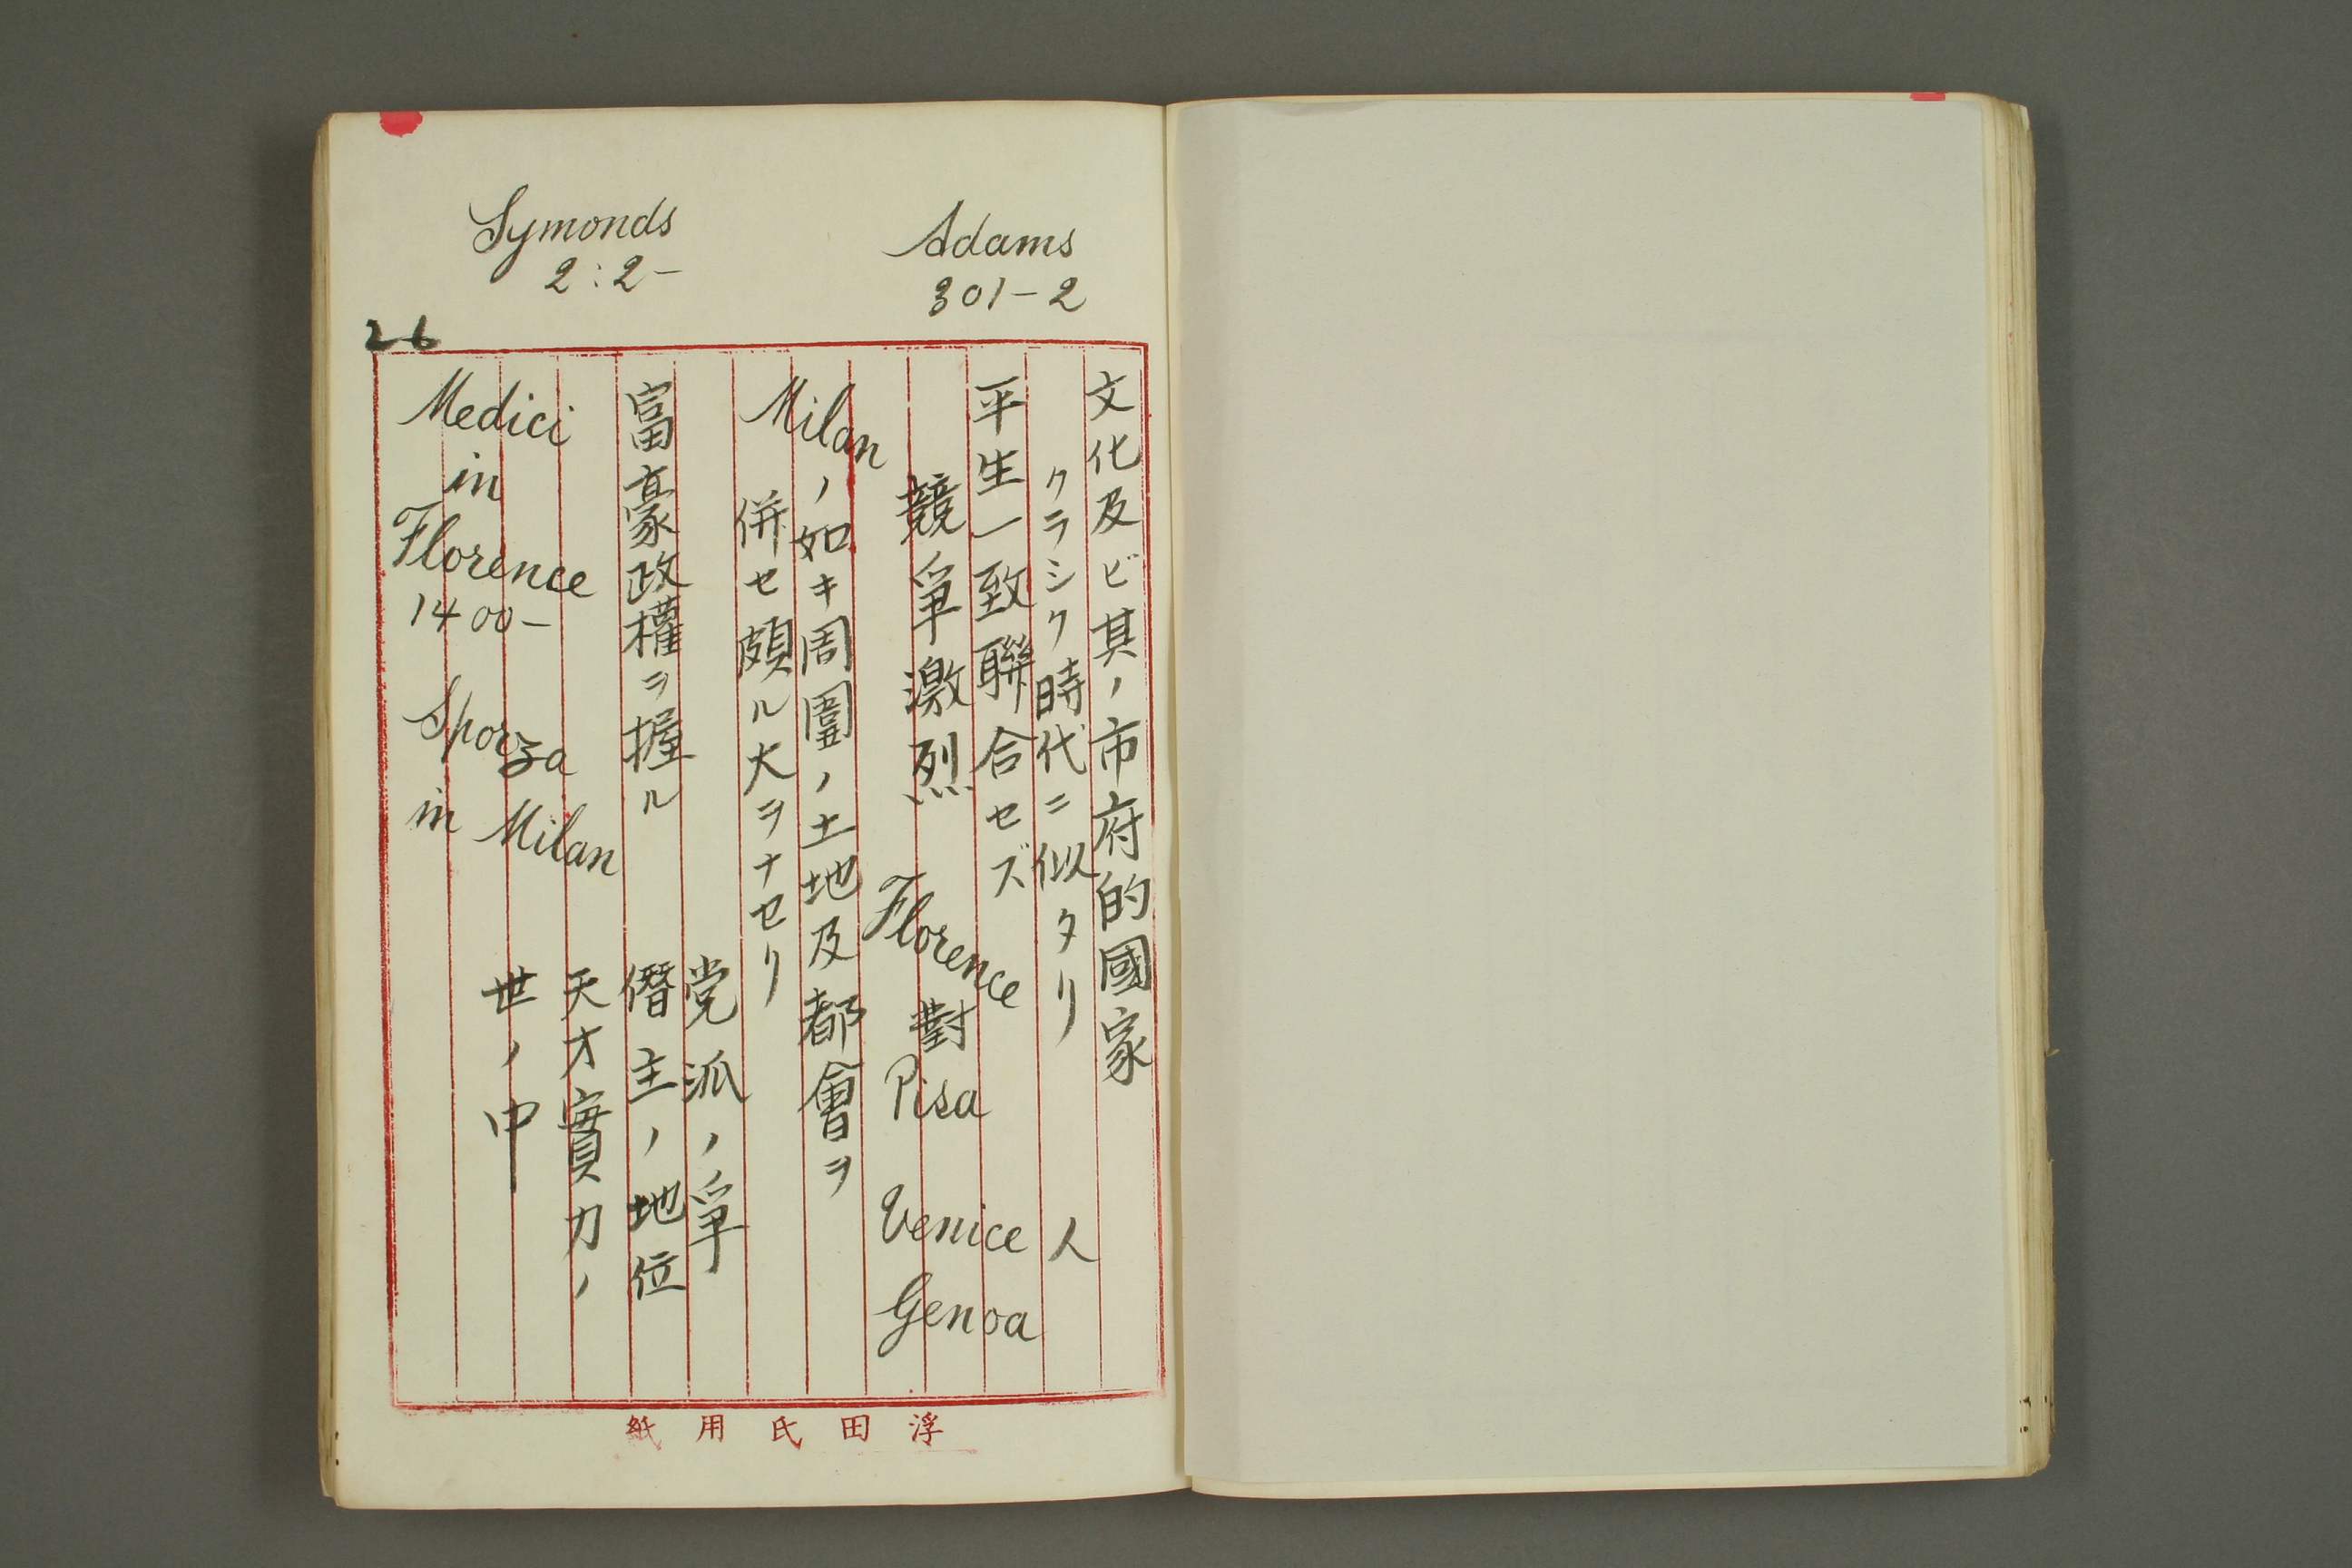 Adams
301-2
Symonds
2:2-
26
文化及ビ其ノ市府的國家
クラシク時代ニ似タリ 人
平生一致聯合セズ
競爭激烈 Florence 對 Pisa Venice Genoa
Milan ノ如キ周圍ノ土地及都會ヲ
併セ頗ル大ヲナセリ
党派ノ爭
富豪政權ヲ握ル 僭主ノ地位
天才實力ノ
世ノ中
Medici
in
Florence
1400-
Sporza
in Milan
浮田氏用紙